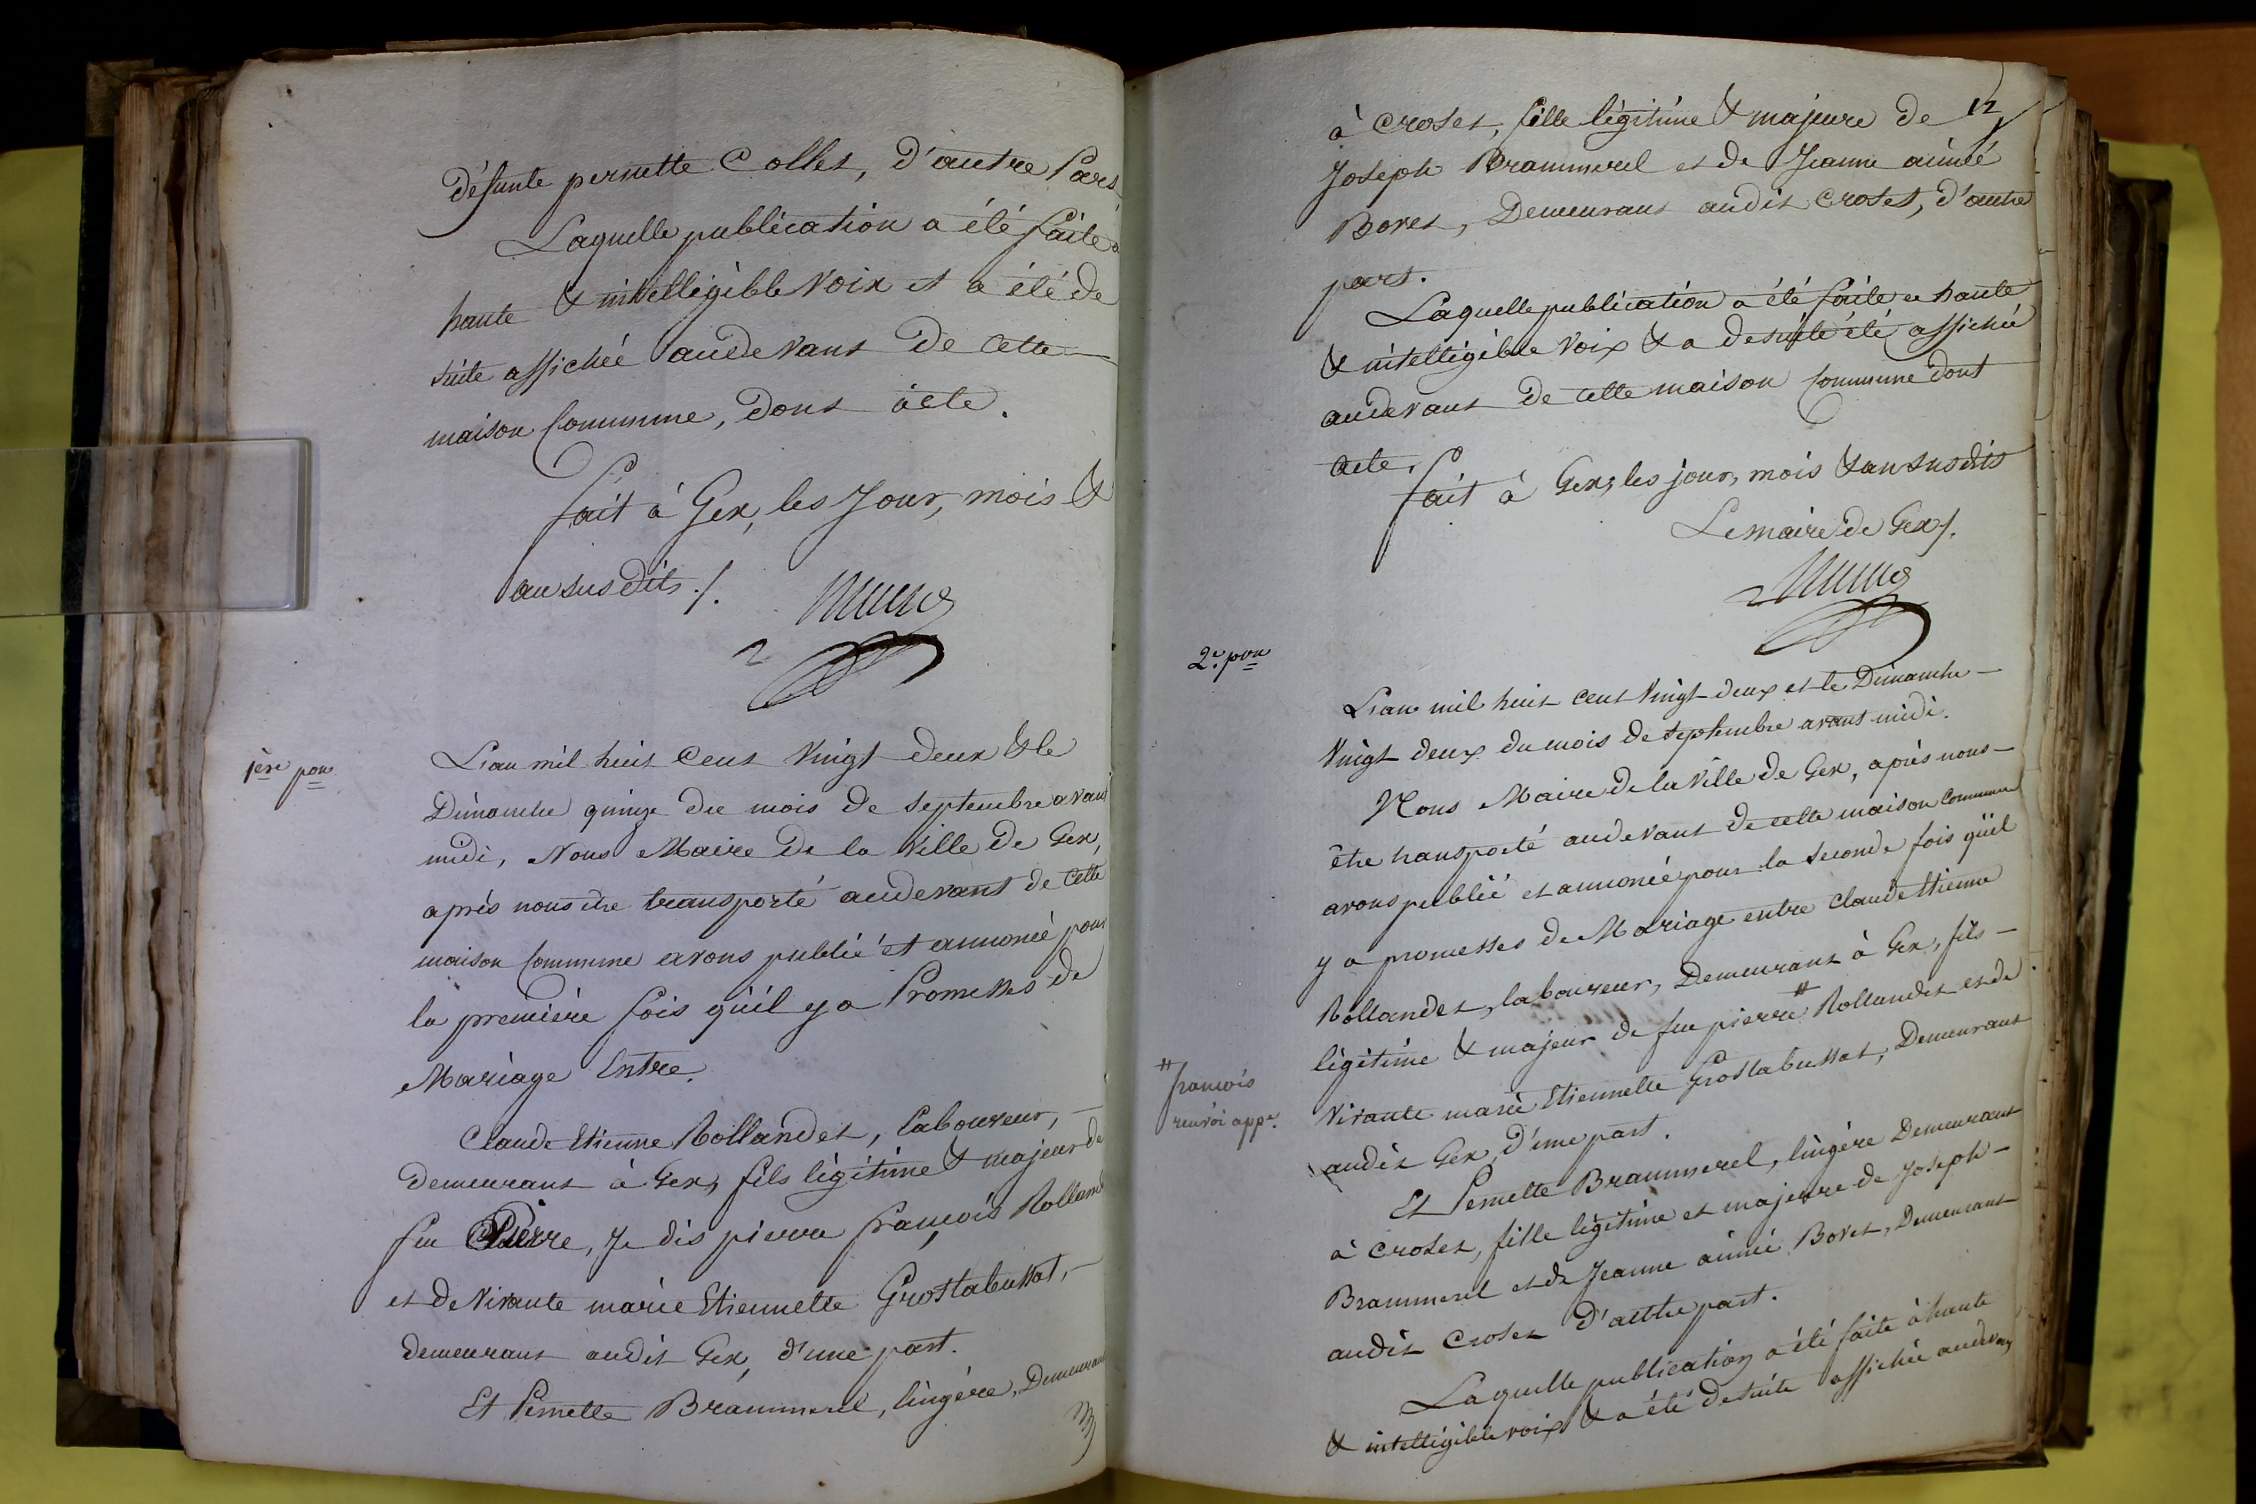 défunte pernette Collet, d'autre Part
Laquelle publication a été faite à
haute & intelligible voix et a été de
suite affichée audevant de cette
maison Commune, dont acte.
fait à Gex, les Jour, mois &
an susdits ./.
1ère pon
L'an mil huit cent vingt deux & le
Dimanche quinze du mois de septembre avant
midi, Nous Maire de la ville de Gex,
après nous être transporté audevant de cette
maison Commune avons publié et annoncé pour
la première fois qu'il y a Promesses de
Mariage Entre.
Claude Etienne Rollandet, laboureur,
demeurant à Gex, fils légitime & majeur de
feu Pierre, Je dis pierre françois Rolland
et de vivante marie Etiennette Grostabussat,
demeurant audit Gex, d'une part.
Et Pernette Brammerel, lingère, Demeurant
12
à Crozet, fille légitime & majeure de
Joseph Brammerel et de Jeanne aimée
Bovet, Demeurant audit Crozet, d'autre
part.
Laquelle publication a été faite a haute
& intelligible voix & a desuite été affichée
audevant de cette maison Commune dont
acte.
fait à Gex, les jour, mois & an susdits
Le maire de Gex ./.
2e. pon
L'an mil huit cent vingt-deux et le Dimanche
vingt deux du mois de septembre avant midi.
Nous Maire de la ville de Gex, après nous
être transporté audevant de cette maison Commune
avons publié et annoncée pour la seconde fois qu'il
y a promesses de Mariage entre Claude Etienne
Rollandet, laboureur, Demeurant à Gex, fils
légitime & majeur de feu pierre # Rollandet et de
# françois
renvoi appé.
vivante marie Etiennette Grostabussat, Demeurant
audit Gex, d'une part.
Et Pernette Brammerel, lingère Demeurant
à Crozet, fille légitime et majeure de Joseph
Brammerel et de Jeanne aimée Bovet, Demeurant
audit Crozet d'autre part.
Laquelle publication a été faite à haute
& intelligible voix & a été desuite affichée audevant